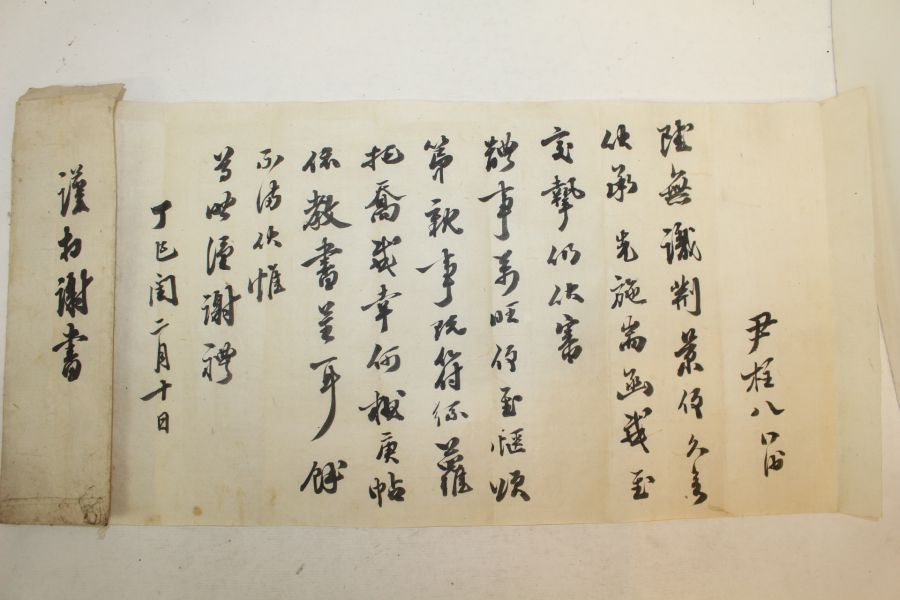 尹柱八
雖無識荊景仰久矣
伏承先施耑函感至
交摯仍伏審
體事萬旺仰至愜頌
第親事既符係蘿
托喬感幸何極庚帖
依教書呈耳餘
不備伏惟
尊照謹謝禮
丁巳閏二月十日
謹拜謝書